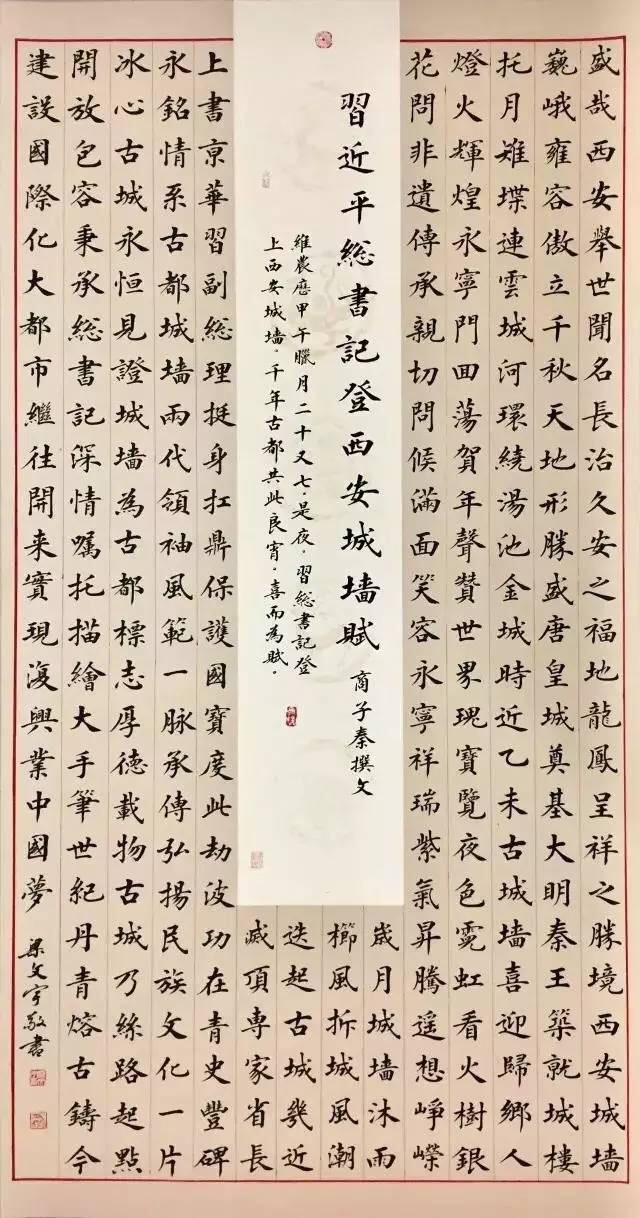 習近平総書記登西安城墙賦 商子秦撰文
維農歷甲午臘月二十又七。是夜。習総書記登
上西安城墙。千年古都共此良宵。喜而為賦。
盛哉西安舉世聞名長治久安之福地龍鳳呈祥之勝境西安城墙
巍峨雍容傲立千秋天地形勝盛唐皇城奠基大明秦王築就城樓
托月雉堞連雲城河環繞湯池金城時近乙未古城墙喜迎歸鄉人
燈火輝煌永寧門回蕩賀年聲贊世界瑰寶覽夜色霓虹看火樹銀
花問非遺傳承親切問候滿面笑容永寧祥瑞紫氣昇騰遥想崢嶸
歲月城墙沐雨
櫛風拆城風潮
迭起古城幾近
滅頂專家省長
上書京華習副総理挺身扛鼎保護國寶度此劫波功在青史豐碑
永銘情系古都城墙兩代領袖風範一脉承傳弘揚民族文化一片
冰心古城永恒見證城墙為古都標志厚德載物古城乃絲路起點
開放包容秉承総書記深情囑托描繪大手筆世紀丹青熔古鑄今
建設國際化大都市繼往開来實現復興業中國夢 梁文宇敬書